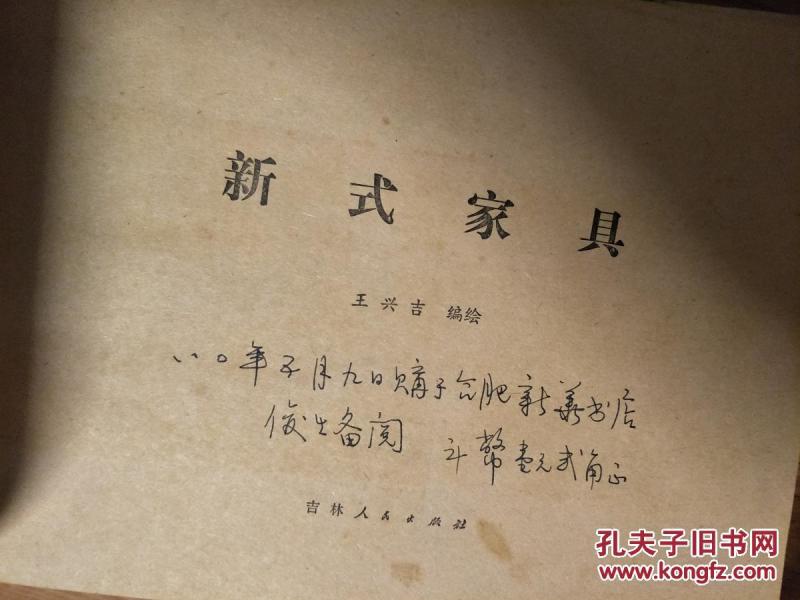 新式家具
王兴吉 编绘
八〇年五月九日购于合肥新华书店
俊生备阅 计幣壹元贰角正
吉林人民出版社
孔夫子旧书网
www.kongfz.com